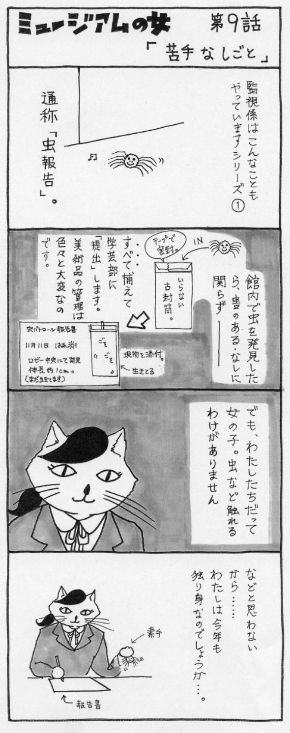 ミュージアムの女
第9話
「苦手なしごと」
監視係はこんなことも
やっています!シリーズ①
通称「虫報告」。
♪
館内で虫を発見した
ら、害のある・なしに
関らず——
IN
テープで
密封。
いらない
古封筒。
すべて捕えて
学芸部に
「提出」します。
美術品の管理は
色々と大変なの
です。
虫パトロール報告書
11月11日
ロビー中央にて発見
体長約1cm。
(まだ生きてます)
現物を添付。
生きてる
でも、わたしたちだって
女の子。虫など触れる
わけがありません
などと思わない
から……
わたしは今年も
独り身なのでしょうか…。
素手
報告書